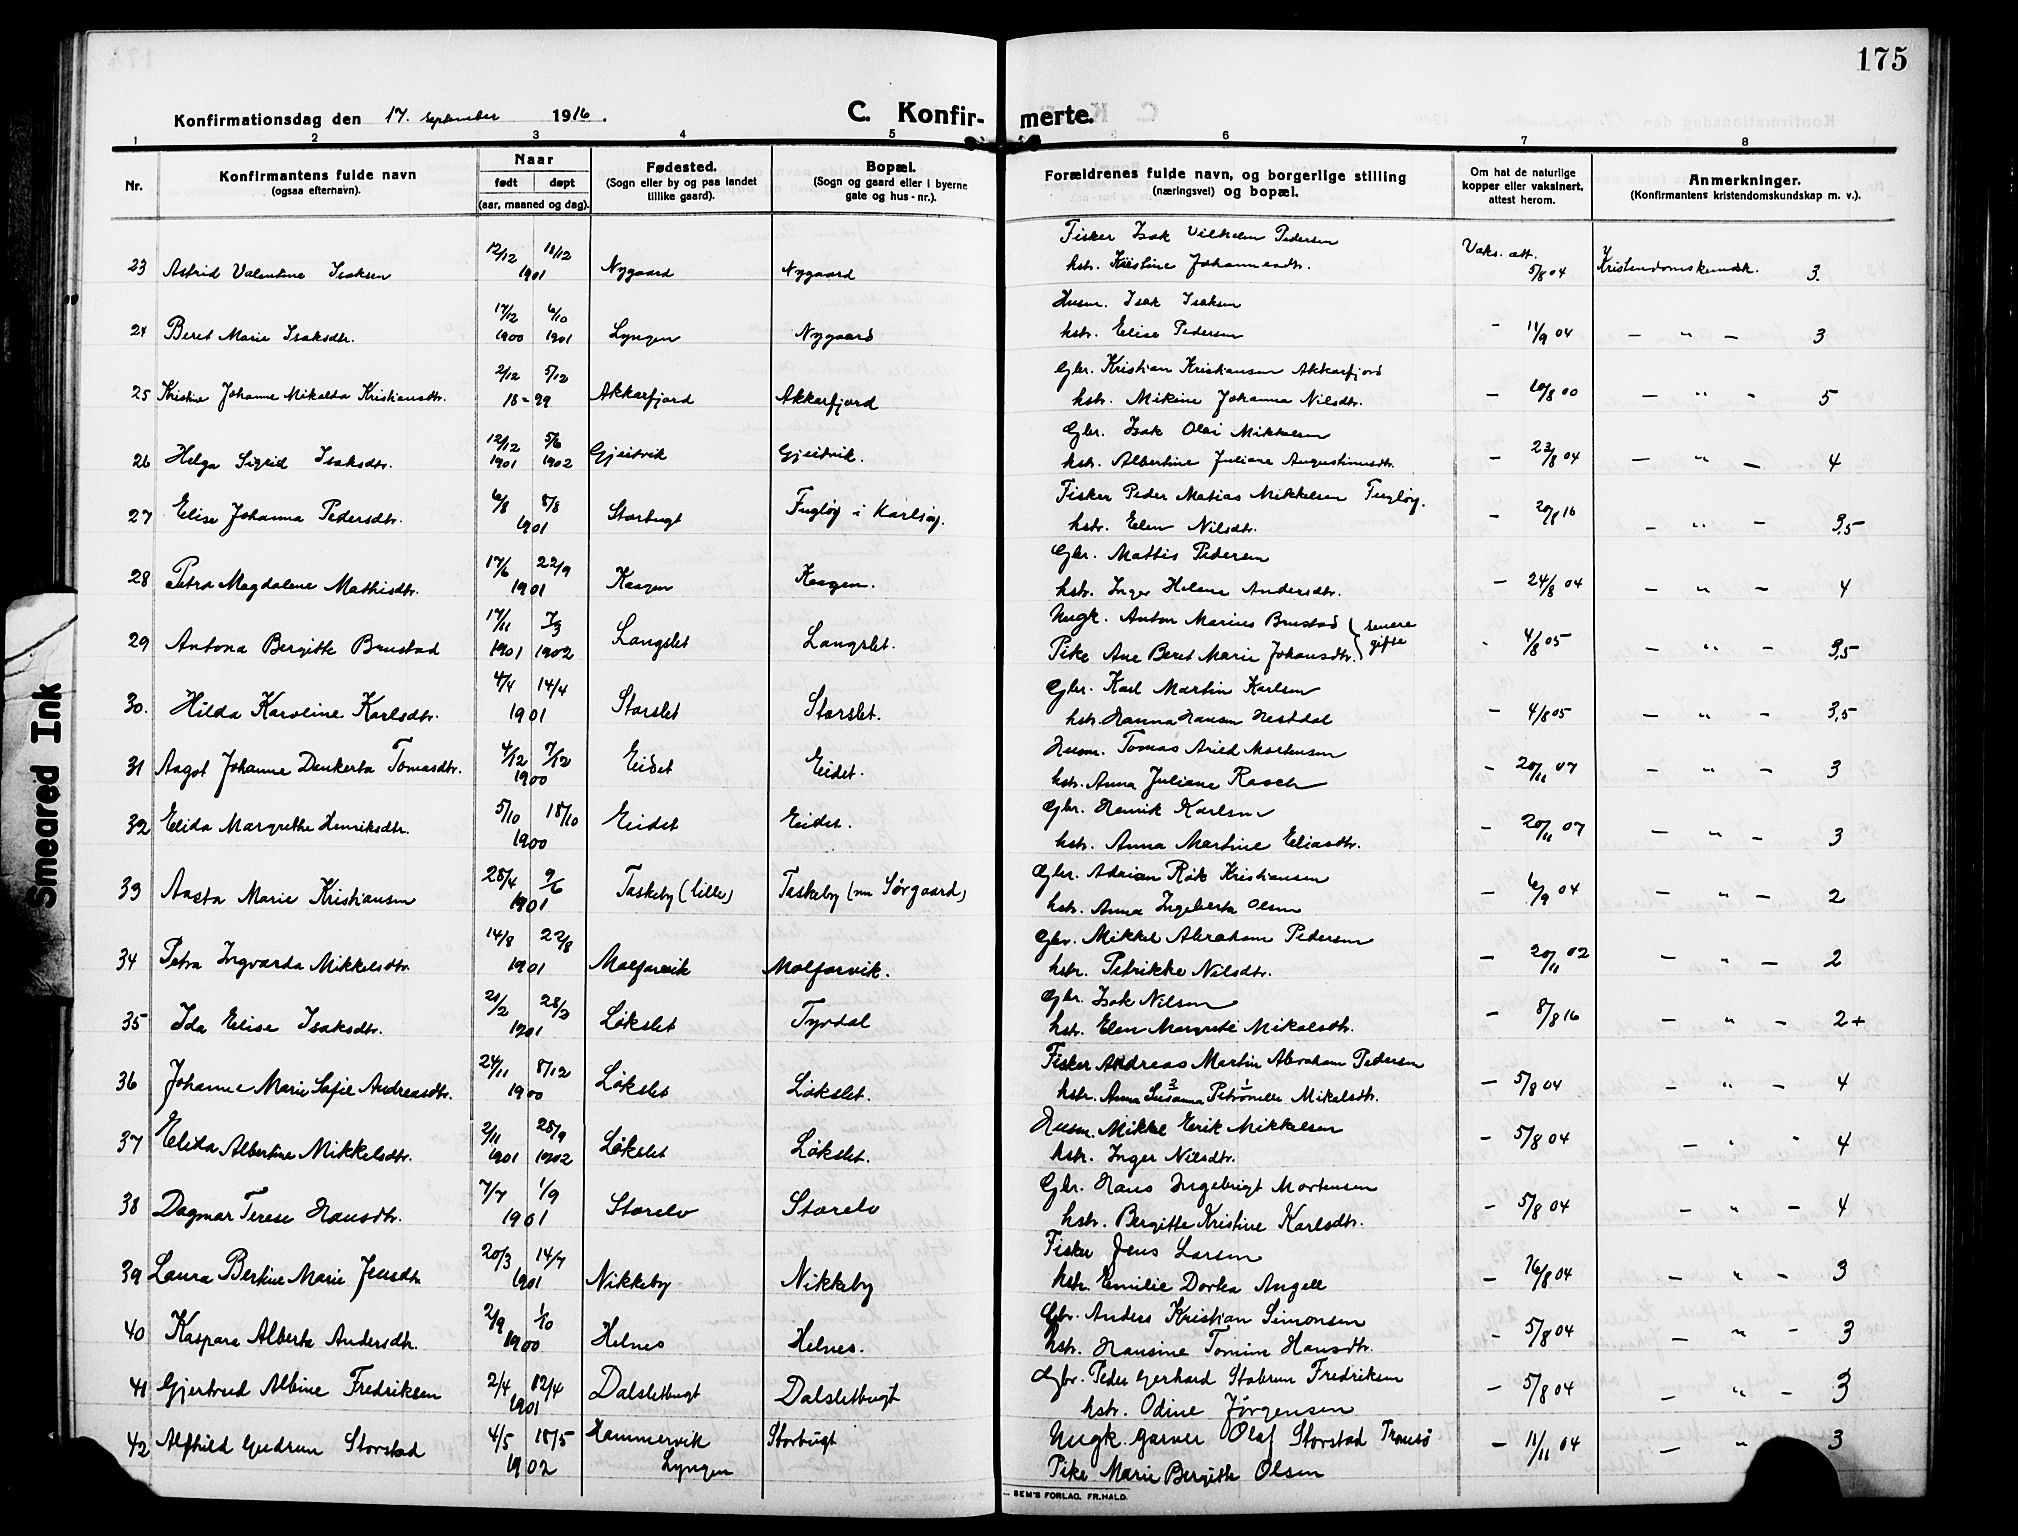 175
Konfirmationsdag den 17. september 1916.
C. Konfirmerte.
1 2 3 4 5 6 7 8
Nr.
Konfirmantens fulde navn
(ogsaa efternavn).
Naar
født døpt
(aar, maaned og dag).
Fødested.
(Sogn eller by og paa landet
tillike gaard).
Bopæl.
(Sogn og gaard eller i byerne
gate og hus-nr.).
Forældrenes fulde navn, og borgerlige stilling
(næringsvei) og bopæl.
Om hat de naturlige
kopper eller vaksinert,
attest herom.
Anmerkninger.
(Konfirmantens kristendomskundskap m. v.).
Fisker Isak Vilhelm Pedersen
23 Astrid Valentine Isaksen 12/12 18/12 1901 Nygaard Nygaard hstr. Kristine Johannesdtr. Vaks. att. 5/8 04 Kristendomskundsk. 3.
Husm. Isak Isaksen
24 Beret Marie Isaksdtr. 17/12 1900 6/10 1901 Lyngen Nygaard hstr. Elise Pedersen - 11/9 04 - " - 3
Gbr. Kristian Kristiansen Akkarfjord
25 Kristine Johanne Mikalda Kristiansdtr. 2/12 5/12 18-99 Akkarfjord Akkarfjord hstr. Mikine Johanna Nilsdtr. - 10/8 00 - " - 5
Gbr. Isak Olai Mikkelsen
26 Helga Sigrid Isaksdtr. 12/12 1901 5/6 1902 Gjeitvik Gjeitvik. hstr. Albertine Juliane Augustinusdtr. - 23/8 04 - " - 4
Fisker Peder Matias Mikkelsen Fugløy.
27 Elise Johanna Pedersdtr. 6/8 8/8 1901 Storbugt Fugløy i Karlsøy. hstr. Elen Nilsdtr. - 20/8 16 - " - 3,5
Gbr. Mattis Pedersen
28 Petra Magdalene Mathisdtr. 17/6 22/9 1901 Kaagen Kaagen. hstr. Inger Helene Andersdtr. - 24/8 04 - " - 4
Ungk. Anton Marius Brustad } senere
29 Antona Bergitte Brustad 17/11 1901 7/3 1902 Langslet Langslet. Pike Ane Beret Marie Johansdtr. } gifte - 4/8 05 - " - 3,5
Gbr. Karl Martin Karlsen
30. Hilda Karoline Karlsdtr. 4/4 14/4 1901 Storslet Storslet. hstr. Hanna Hansen Hestdal - 4/8 05 - " - 3,5
Husm. Tomas Arild Mortensen
31 Aagot Johanne Dankerta Tomasdtr. 4/12 7/12 1900 Eidet Eidet. hstr. Anna Juliane Rasch - 20/11 07 - " - 3
Gbr. Henrik Karlsen
32 Elida Margrethe Henriksdtr. 5/10 18/10 1900 Eidet Eidet. hstr. Anna Martine Eliasdtr. - 20/11 07 - " - 3
Gbr. Adrian Røik Kristiansen
33 Aasta Marie Kristiansen 28/4 9/6 1901 Taskeby (lille) Taskeby (nu Sørgaard) hstr. Anna Ingeberta Olsen - 6/9 04 - " - 2
Gbr. Mikkel Abraham Pedersen
34 Petra Ingvarda Mikkelsdtr. 14/8 22/8 1901 Molfarvik Molfarvik. hstr. Petrikke Nilsdtr. - 20/11 02 - " - 2
Gbr. Isak Nilsen
35 Ida Elise Isaksdtr. 21/2 28/2 1901 Løkslet Tyrdal hstr. Elen Margrete Mikalsdtr. - 8/8 16 - " - 2+
Fisker Andreas Martin Abraham Pedersen
36 Johanne Marie Sofie Andreasdtr. 24/11 8/12 1900 Løkslet Løkslet. hstr. Anna Susanna Petronelle Mikelsdtr. - 5/8 04 - " - 4
Husm. Mikkel Erik Mikkelsen
37 Elida Albertine Mikkelsdtr. 2/11 1901 28/9 1902 Løkslet Løkslet. hstr. Inger Nilsdtr. - 5/8 04 - " - 4
Gbr. Hans Ingebrigt Mortensen
38 Dagmar Terese Hansdtr. 7/7 1/9 1901 Storelv Storelv hstr. Bergitte Kristine Karlsdtr. - 5/8 04 - " - 4
Fisker Jens Larsen
39 Laura Bertine Marie Jensdtr 20/3 14/7 1901 Nikkeby Nikkeby hstr. Emilie Dorka Angell - 16/8 04 - " - 3
Gbr. Anders Kristian Simonsen
40 Kaspara Alberta Andersdtr. 2/9 1/10 1900 Helnes Helnes. hstr. Hansine Tomine Hansdtr. - 5/8 04 - " - 3
Gbr. Peder Gerhard Stabrun Fredriksen
41 Gjertrud Albine Fredriksen 2/4 12/4 1901 Dalsletbugt Dalsletbugt hstr. Odine Jørgensen - 5/8 04 - " - 3
42 Alfhild Gudrun Storstad 4/5 18/5 1902 Hammervik Lyngen Storbugt Ungk. garver Olaf Storstad Tromsø - 11/11 04 - " - 3
Pike Marie Bergitte Olsen
SEM'S FORLAG. FR.HALD.
Smeared Ink